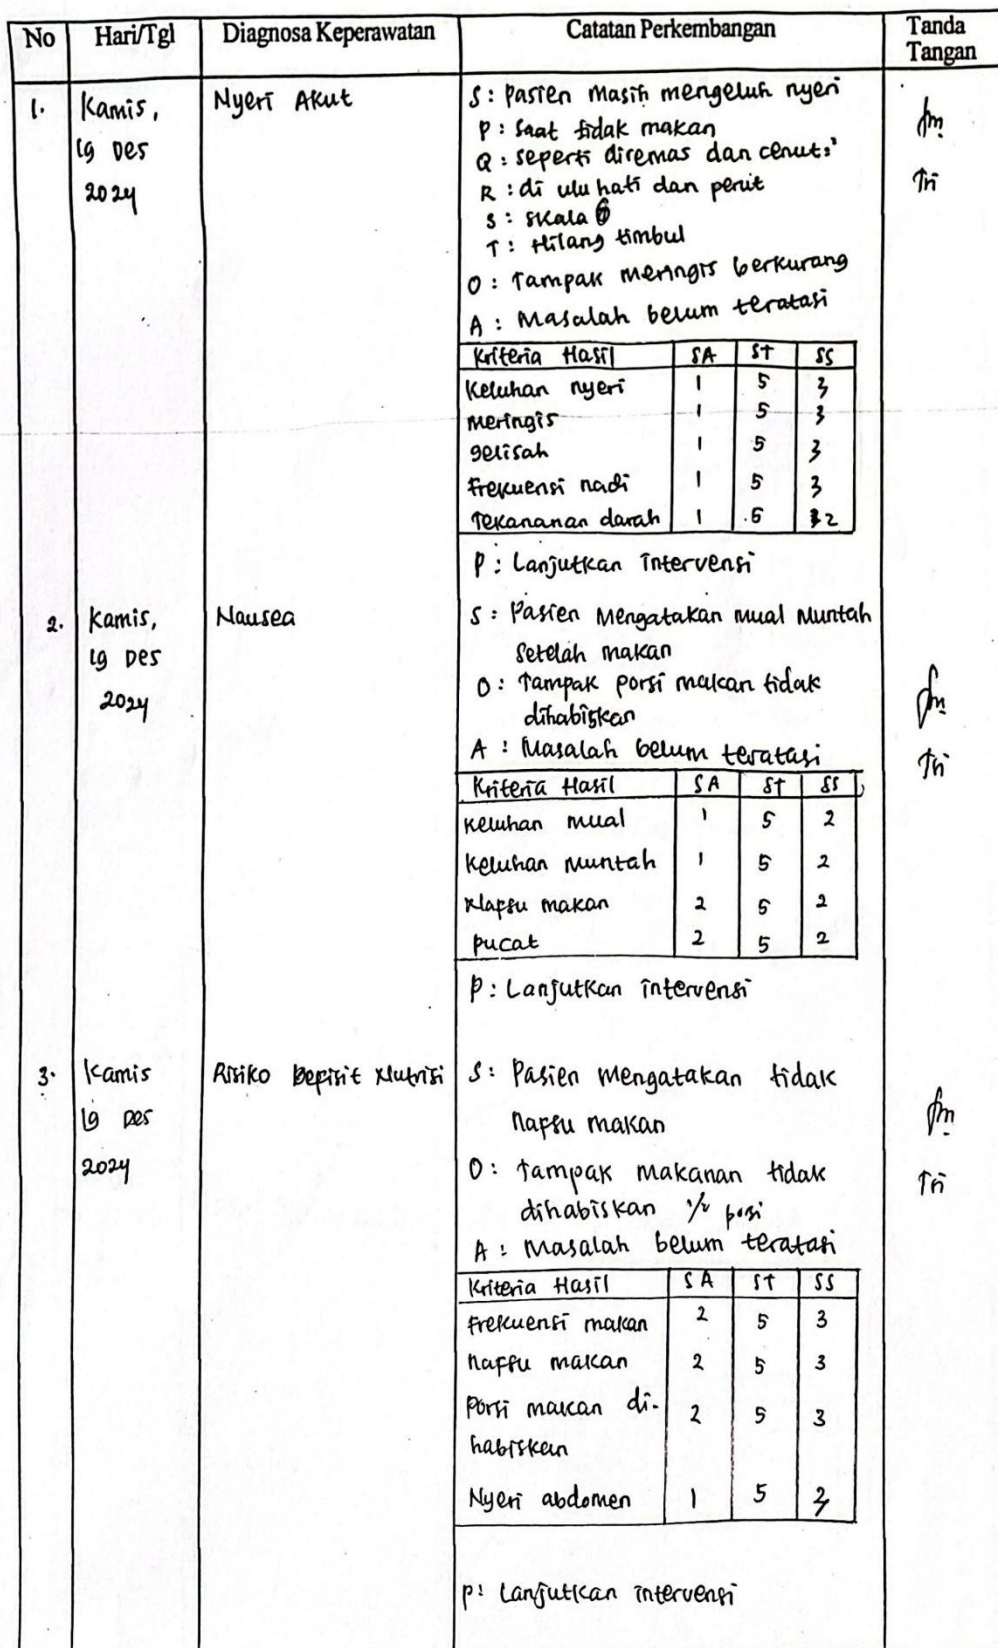 No Hari/Tgl Diagnosa Keperawatan Catatan Perkembangan Tanda Tangan
1. Kamis, 19 Des 2024 Nyeri Akut
S : Pasien Masih mengeluh nyeri
P : Saat tidak makan
Q : seperti diremas dan cenut²
R : di ulu hati dan perut
S : skala 6
T : Hilang timbul
O : Tampak meringis berkurang
A : Masalah belum teratasi
Kriteria Hasil SA ST SS
Keluhan nyeri 1 5 3
meringis 1 5 3
gelisah 1 5 3
Frekuensi nadi 1 5 3
Tekananan darah 1 5 2
P : Lanjutkan intervensi
Tri
2. Kamis, 19 Des 2024 Nausea
S : Pasien Mengatakan mual Muntah
setelah makan
O : Tampak porsi makan tidak
dihabiskan
A : Masalah belum teratasi
Kriteria Hasil SA ST SS
Keluhan mual 1 5 2
Keluhan Muntah 1 5 2
Nafsu makan 2 5 2
pucat 2 5 2
P : Lanjutkan intervensi
Tri
3. Kamis 19 Des 2024 Risiko Depisit Nutrisi
S : Pasien Mengatakan tidak
napsu makan
O : tampak makanan tidak
dihabiskan 1/2 porsi
A : Masalah belum teratasi
Kriteria Hasil SA ST SS
Frekuensi makan 2 5 3
nafsu makan 2 5 3
Porsi makan di-
habiskan 2 5 3
Nyeri abdomen 1 5 3
P : Lanjutkan intervensi
Tri